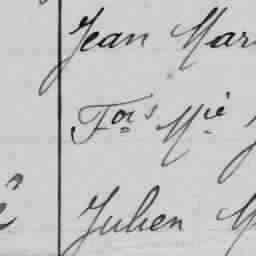 Jean Mar
Fois Mie
Julien M